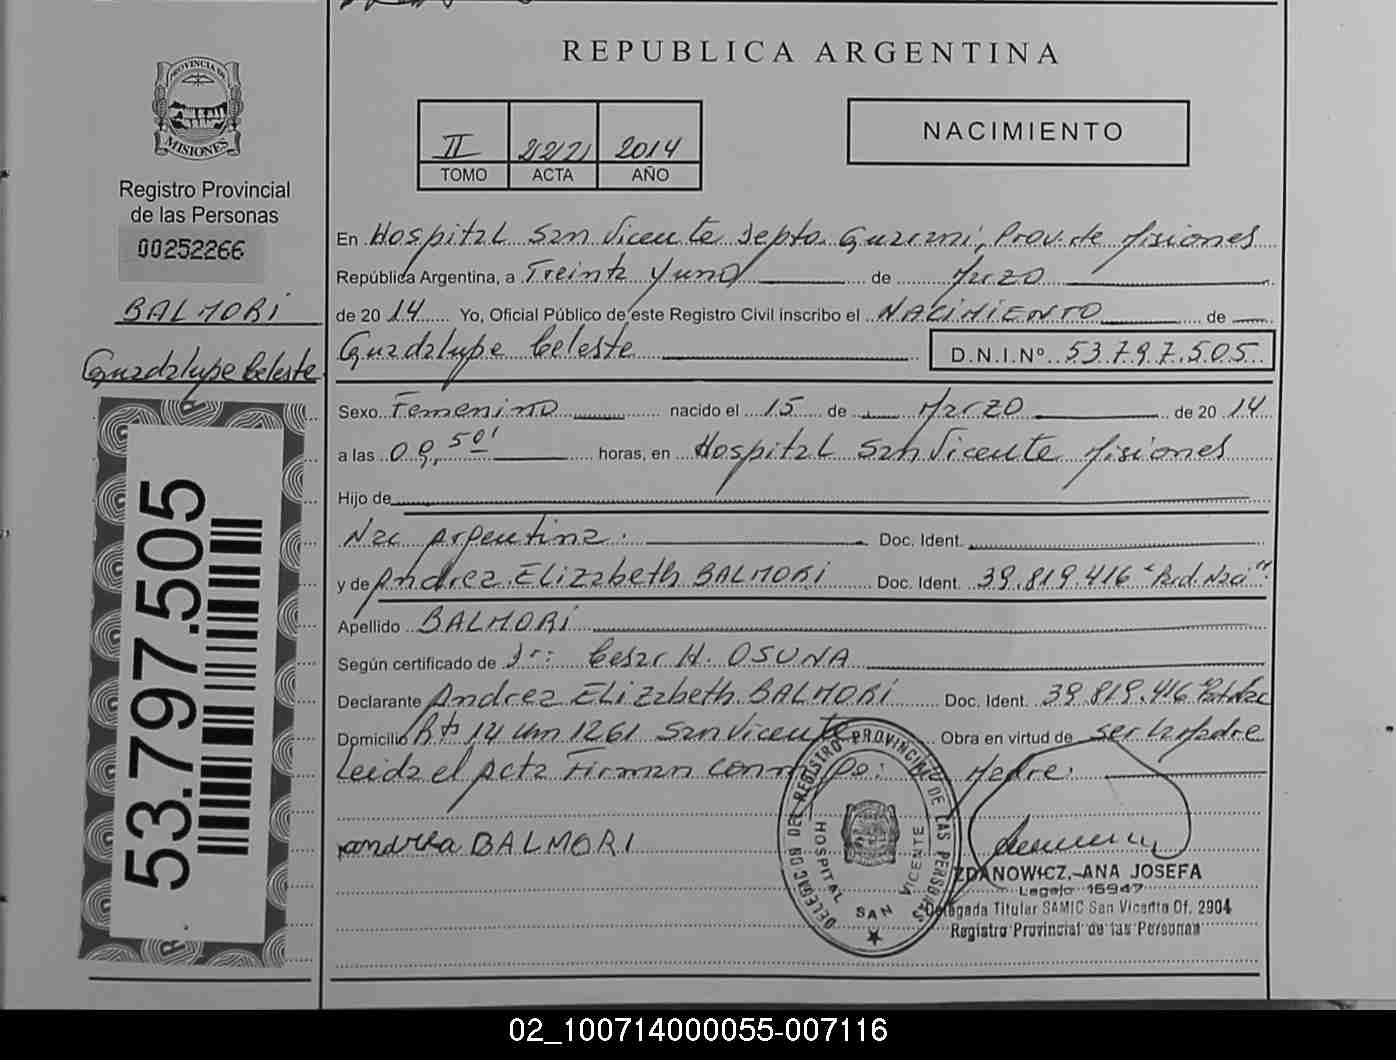 REPUBLICA ARGENTINA
PROVINCIA DE
MISIONES
Registro Provincial
de las Personas
00252266
BALMORI
Guadalupe Celeste
53.797.505
II 221 2014
TOMO ACTA AÑO
NACIMIENTO
En Hospital San Vicente Depto. Guarani, Prov. de Misiones
República Argentina, a Treinta y uno de Marzo
de 2014 Yo, Oficial Público de este Registro Civil inscribo el NACIMIENTO de
Guadalupe Celeste D.N.I.Nº 53.797.505
Sexo Femenino nacido el 15 de Marzo de 2014
a las 09,50' horas, en Hospital San Vicente Misiones
Hijo de
Nac Argentina. Doc. Ident.
y de Andrea Elizabeth BALMORI Doc. Ident. 39.819.416 "Nac."
Apellido BALMORI
Según certificado de Dr: Cesar H. OSUNA
Declarante Andrea Elizabeth BALMORI Doc. Ident. 39.819.416
Domicilio Rta 14 Km 1261 San Vicente Obra en virtud de ser la Madre
Leida el Acta Firman Conmigo: Madre:
andrea BALMORI
DELEGACION DEL REGISTRO PROVINCIAL DE LAS PERSONAS
HOSPITAL SAN VICENTE
ZDANOWICZ, ANA JOSEFA
Legajo 16947
Delegada Titular SAMIC San Vicente Of. 2904
Registro Provincial de las Personas
02_100714000055-007116